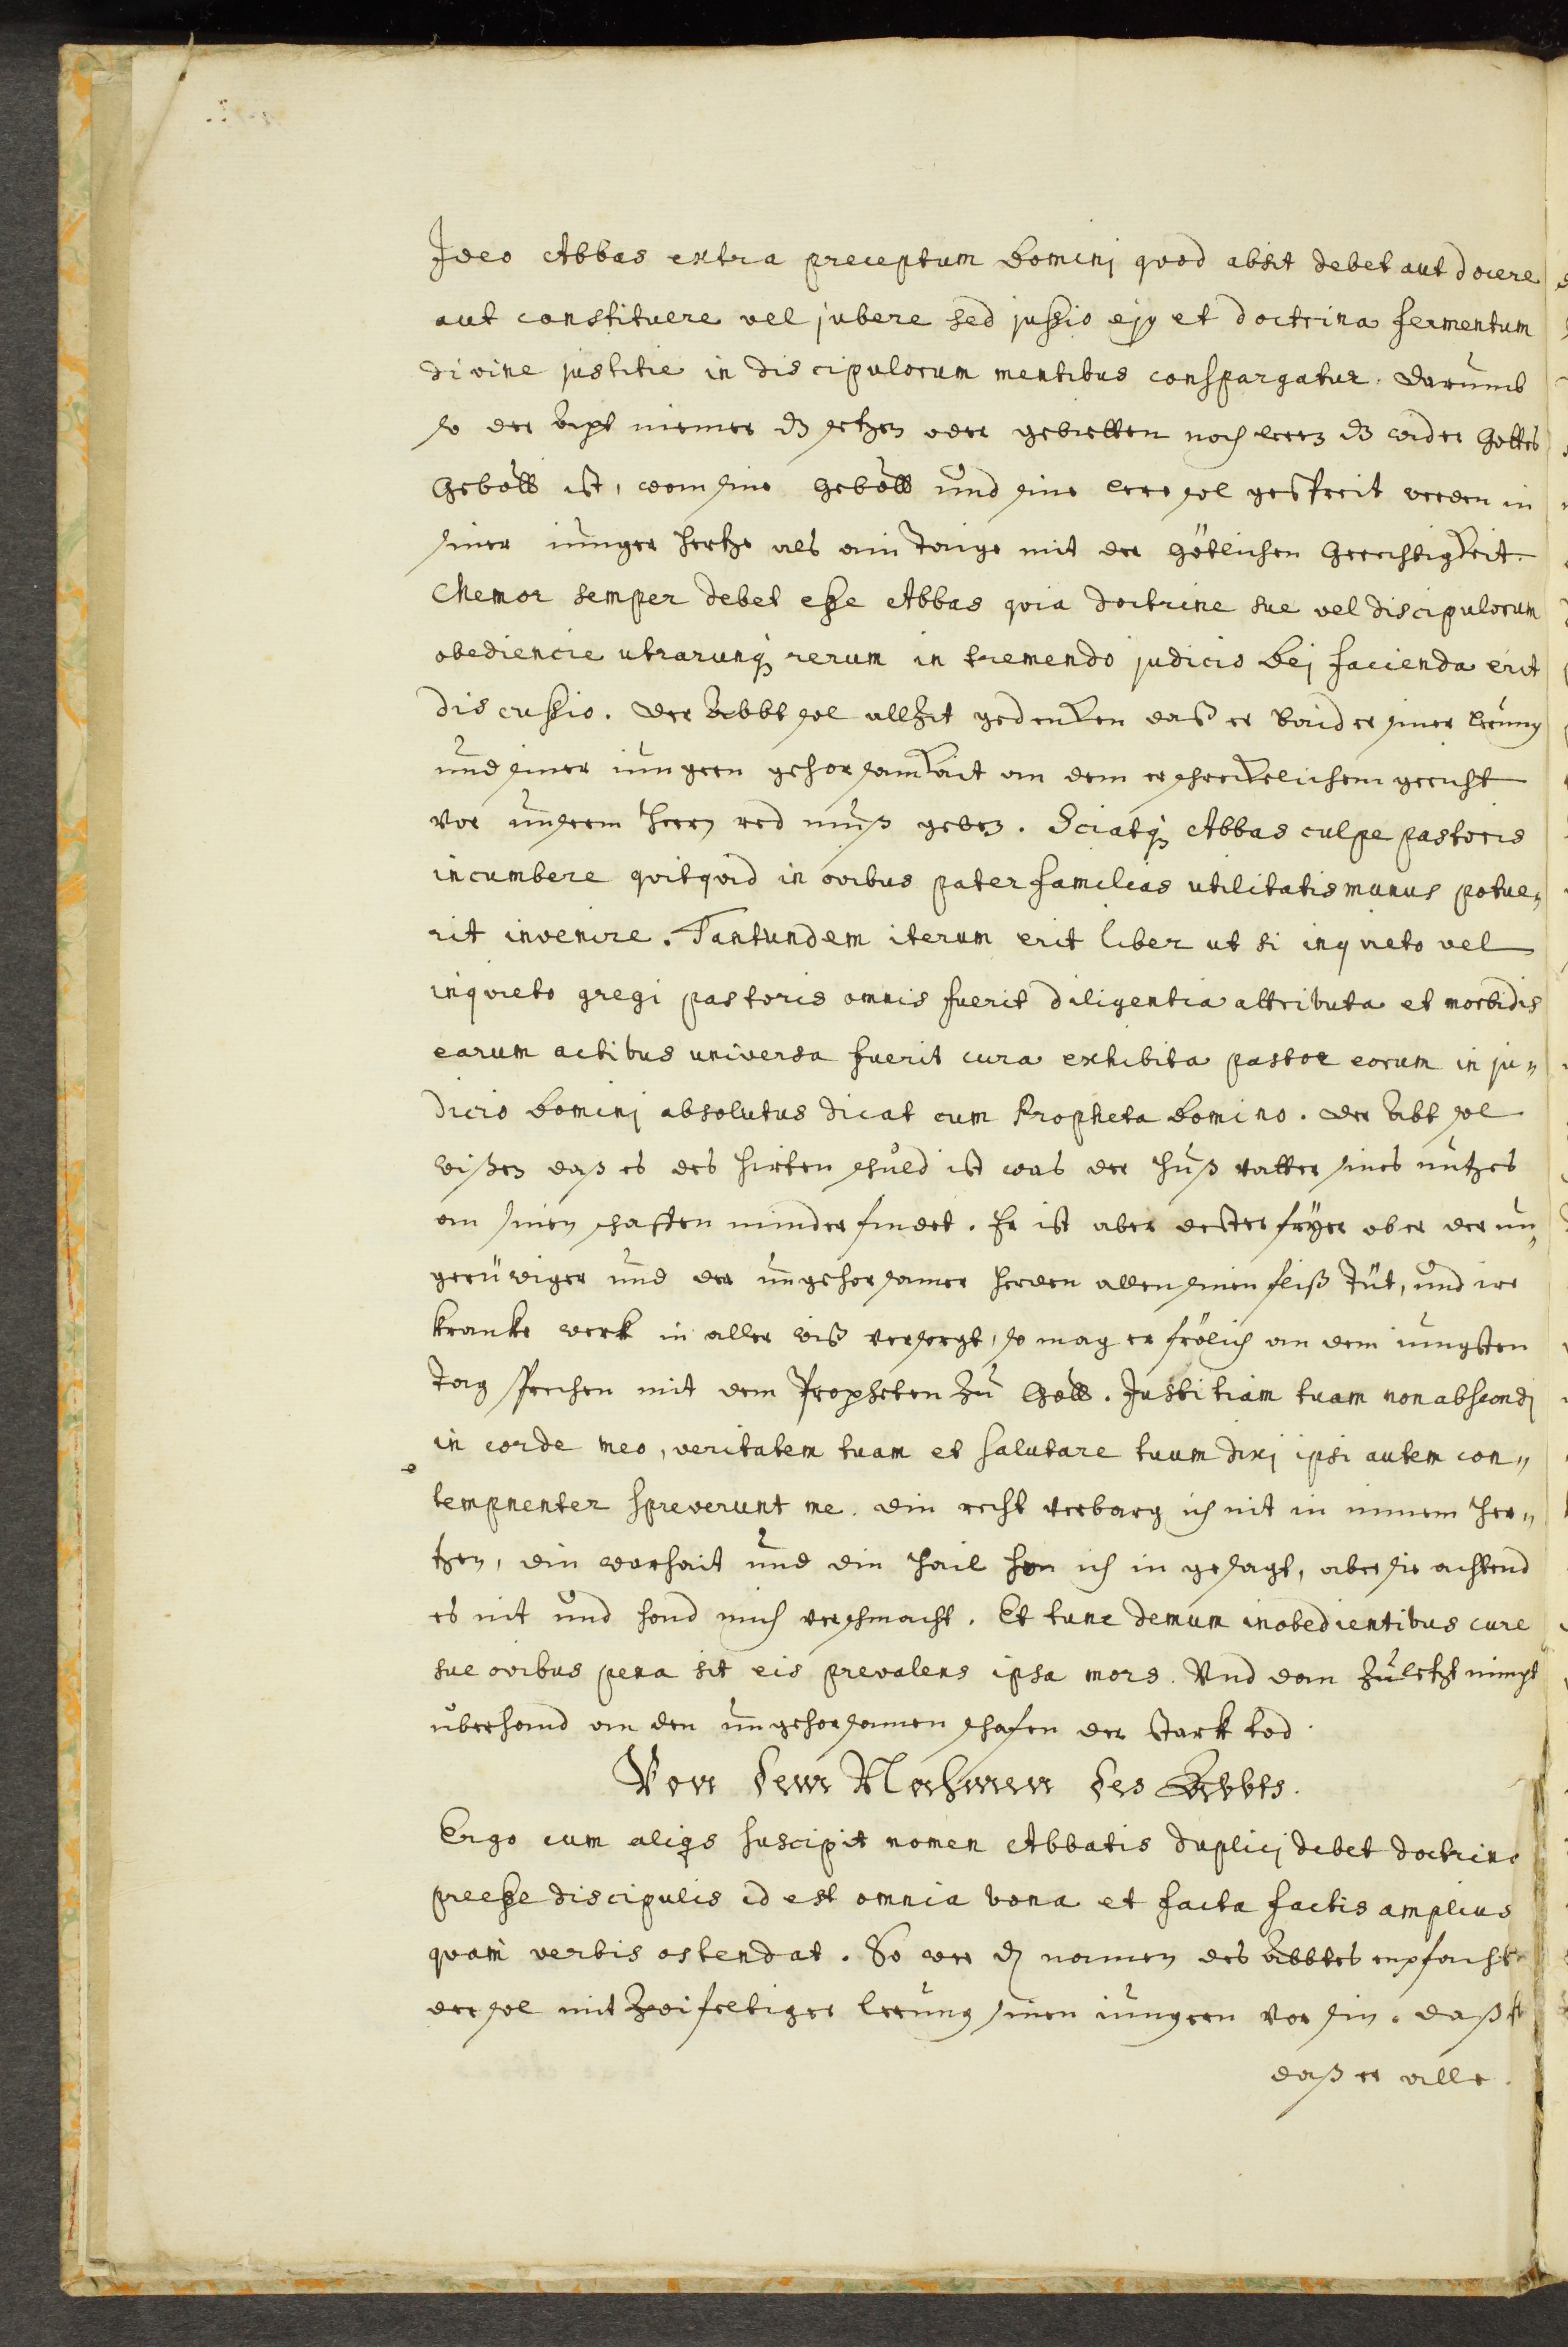 Ideo Abbas extra preceptum Dominj quod absit debet aut docere
aut constituere vel jubere sed jussio ejq et doctrina fermentum
divine justitie in discipulorum mentibus conspargatur. darumb
so der Apt niemer dz setzen oder gebietten noch leren dz wider Gottes
Gebott ist, wom sine Gebott und sine lere sol gestreit werden in
siner junger Hertze als ain Taige mit der Götlichen Gerechtigkeit.
Memor semper debet esse Abbas quia doctrine sue vel discipulorum
obediencie utrarunq rerum in tremendo judicio Dej facienda erit
discussio. der Abbt sol allzit gedenken daß er baider siner lerung
und siner jungern gehorsamkait an dem erschreckelichem gericht
vor unserm Heren red muß geben. Sciatq Abbas culpe pastoris
incumbere quitquid in ovibus pater familias utilitatis munus potue„
rit invenire. Tantundem iterum erit liber ut si inquieto vel
inquieto gregi pastoris omnis fuerit diligentia attributa et morbidis
earum actibus universa fuerit cura exhibita pastor eorum in ju„
dicio Dominj absolutus dicat cum Propheta Domino. der Abt sol
wißen daß es des Hirten schuld ist was der Huß vatter sines nutzes
an sinen schaffen minder findet. Er ist aber dester fryer ob er der un„
gerüwiger und der ungehorsamer Herden allen sinen fliß Tüt, und ire
kranke werk in aller wiß versorgt, so mag er frölich an dem jungsten
Tag sprechen mit dem Propheten zu Gott. Justitiam tuam non abscondj
in corde meo, veritatem tuam et salutare tuum dixj ipsi autem con„
tempnenter spreverunt me. din recht verbarg ich nit in minem Her„
tzen, din warhait und din Hail hon ich in gesagt, aber sie achtend
es nit und hond mich verschmacht. Et tunc demum inobedientibus cure
sue ovibus pena sit eis prevalens ipsa mors. Und dan zuletzt nimpt
überhand an den ungehorsamen schafen der stark tod.
Von dem Nahmen des Abbts.
Ergo cum aliqs suscipit nomen Abbatis duplicj debet doctrina
preesse discipulis id est omnia bona et facta factis amplius
quam verbis ostendat. So wer dz namen des Abbtes enpfacht
der sol mit zwifeltiger lerung sinen jungern vor sin. daß
daß er alle.